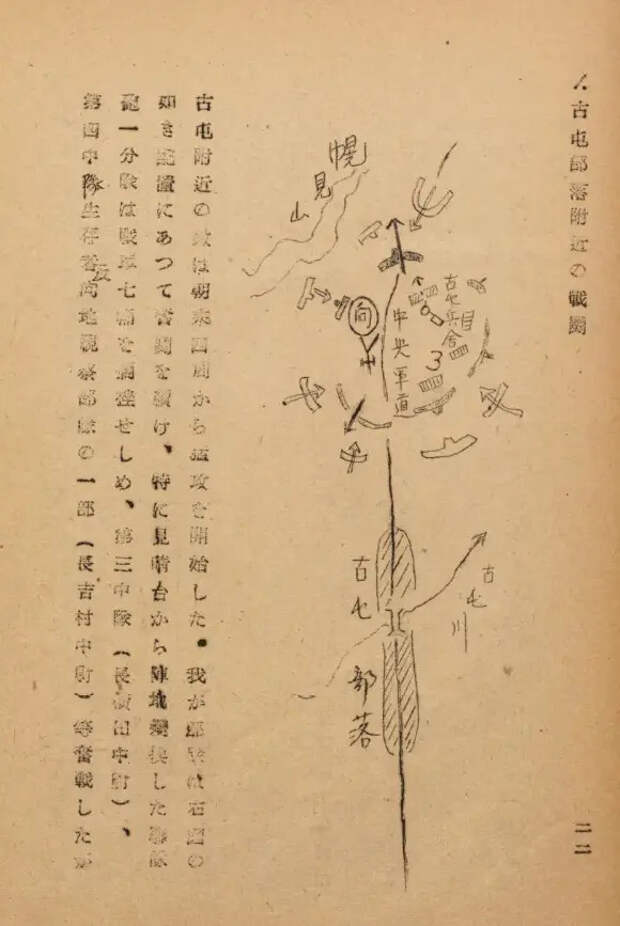 八古屯部落附近の戦闘
幌見山
古屯兵舎
中央軍道
向
3
古屯川
古屯
部落
古屯附近の敵は朝来四周から猛攻を開始した。我が部隊は右図の
如き態勢にあつて奮闘を続け、特に見晴台から陣地変換した聯隊
砲一分隊は敵戦七輌を擱挫せしめ、第三中隊(長 田中 )、
第四中隊生存者及向地視察部隊の一部(長吉村中尉)等奮戦したが
二二